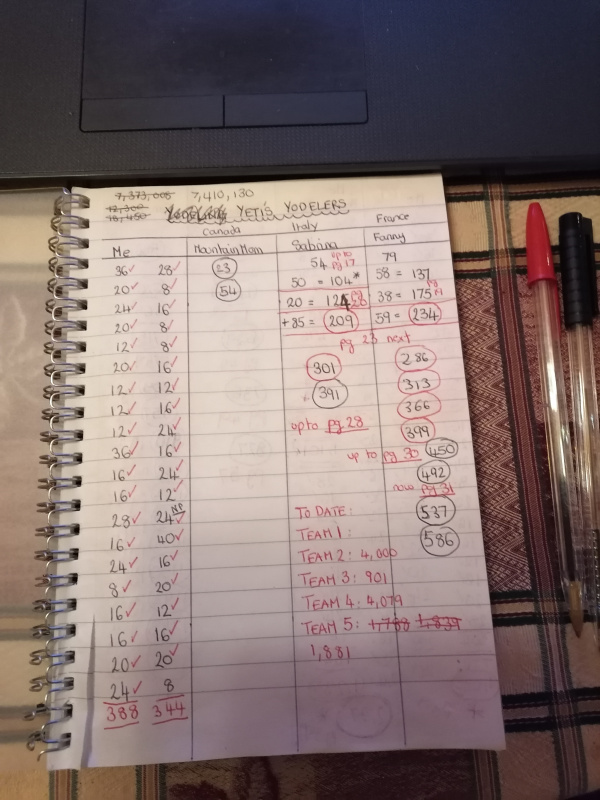 7,373,005 7,410,130
12,300
18,450 YETI'S YODELERS
Canada Italy France
Me Mountain Mom Sabina Fanny
36✓ 28✓ 23 54 up to pg 17 79
20✓ 8✓ 54 50 = 104* 58 = 137
24✓ 16✓ 20 = 124 38 = 175
20✓ 8✓ +85 = 209 59 = 234
12✓ 8✓ pg 23 next
20✓ 16✓ 301 286
12✓ 12✓ 391 313
12✓ 16✓ 366
12✓ 24✓ up to pg 28 399
36✓ 16✓ up to pg 30 450
16✓ 24✓ 492
16✓ 12✓ now pg 31
28✓ 24✓ NP TO DATE: 537
16✓ 40✓ TEAM 1: 586
24✓ 16✓ TEAM 2: 4,000
8✓ 20✓ TEAM 3: 901
16✓ 12✓ TEAM 4: 4,079
16✓ 16✓ TEAM 5: 1,788 1,839
20✓ 20✓ 1,881
24✓ 8
388 344